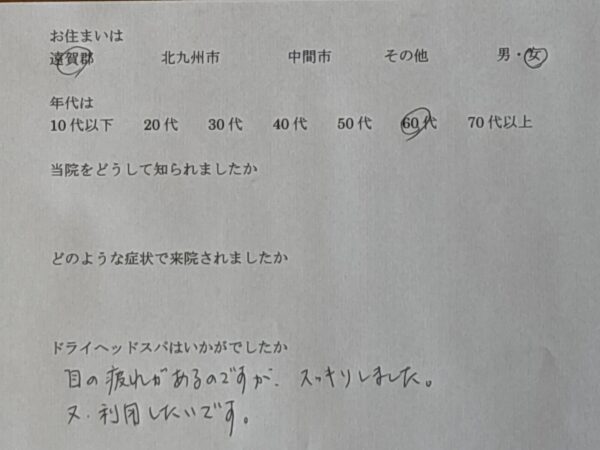 お住まいは
遠賀郡 北九州市 中間市 その他 男・女
年代は
10代以下 20代 30代 40代 50代 60代 70代以上
当院をどうして知られましたか
どのような症状で来院されましたか
ドライヘッドスパはいかがでしたか
目の疲れがあるのですが、スッキリしました。
又、利用したいです。